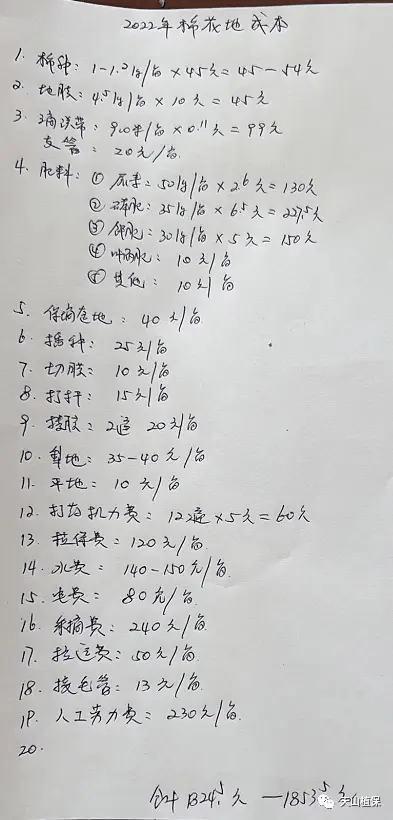 2022年棉花地成本
1. 棉种: 1-1.2kg/亩 × 45元 = 45-54元
2. 地膜: 4.5kg/亩 × 10元 = 45元
3. 滴灌带: 900米/亩 × 0.11元 = 99元
支管: 20元/亩.
4. 肥料: ① 尿素: 50kg/亩 × 2.6元 = 130元
② 磷肥: 35kg/亩 × 6.5元 = 227.5元
③ 钾肥: 30kg/亩 × 5元 = 150元
④ 叶面肥: 10元/亩
⑤ 其他: 10元/亩
5. 地: 40元/亩
6. 播种: 25元/亩
7. 切膜: 10元/亩
8. 打杆: 15元/亩
9. 搂膜: 2遍 20元/亩
10. 犁地: 35-40元/亩
11. 平地: 10元/亩
12. 打药机力费: 12遍 × 5元 = 60元
13. 拉保费: 120元/亩.
14. 水费: 140-150元/亩.
15. 电费: 80元/亩.
16. 采摘费: 240元/亩.
17. 拉运费: 50元/亩.
18. 接毛管: 13元/亩.
19. 人工劳力费: 230元/亩.
20.
合计 1324.5元 — 1853.5元
植保